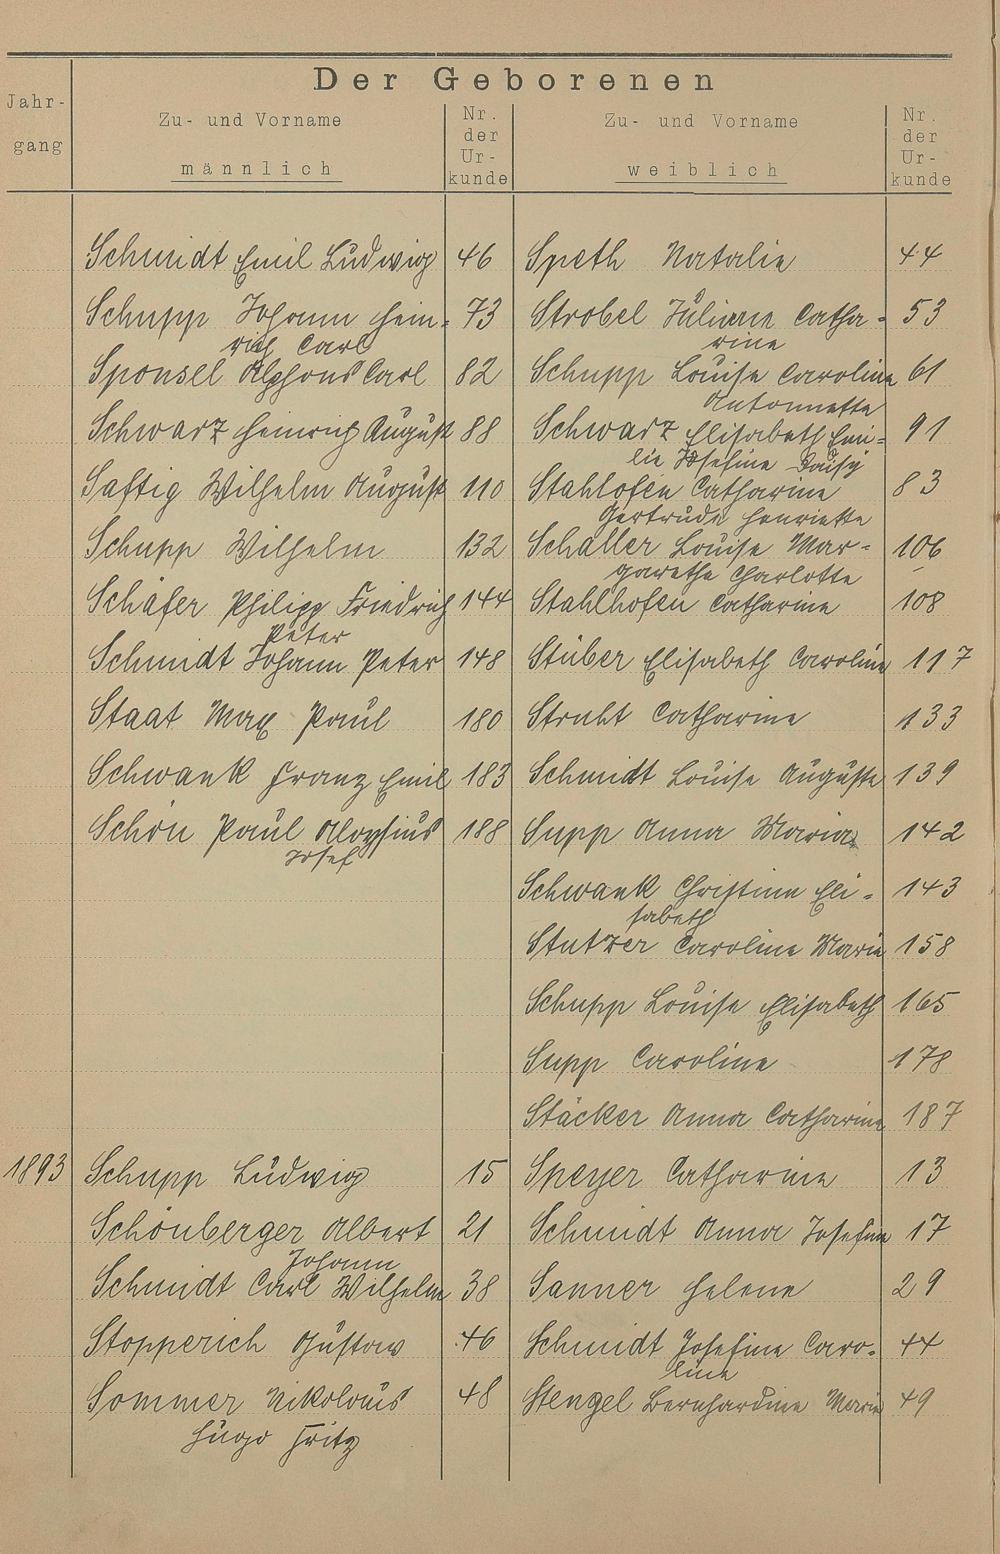 Der Geborenen
Jahr-
gang
Zu- und Vorname
männlich
Nr.
der
Ur-
kunde
Zu- und Vorname
weiblich
Nr.
der
Ur-
kunde
Schmidt Emil Ludwig 46 Speth Natalie 44
Schupp Johann Hein- 73 Strobel Juliane Catha- 53
rich Carl rine
Sponsel Alphons Carl 82 Schupp Louise Caroline 61
Antonnette
Schwarz Heinrich August 88 Schwarz Elisabeth Emi- 91
lie Josefine Daisy
Saftig Wilhelm August 110 Stahlofen Catharine 83
Gertrude Henriette
Schupp Wilhelm 132 Schaller Louise Mar- 106
garethe Charlotte
Schäfer Philipp Friedrich 144 Stahlhofen Catharine 108
Peter
Schmidt Johann Peter 148 Stüber Elisabeth Caroline 117
Staat Max Paul 180 Struht Catharine 133
Schwank Franz Emil 183 Schmidt Louise Auguste 139
Schön Paul Aloysius 188 Supp Anna Maria 142
Josef
Schwank Christine Eli- 143
sabeth
Stutzer Caroline Marie 158
Schupp Louise Elisabeth 165
Supp Caroline 178
Stäcker Anna Catharine 187
1893 Schupp Ludwig 15 Speyer Catharine 13
Schönberger Albert 21 Schmidt Anna Josefine 17
Johann
Schmidt Carl Wilhelm 38 Sanner Helene 29
Stopperich Gustav 46 Schmidt Josefine Caro- 44
line
Sommer Nikolaus 48 Stengel Bernhardine Marie 49
Hugo Fritz